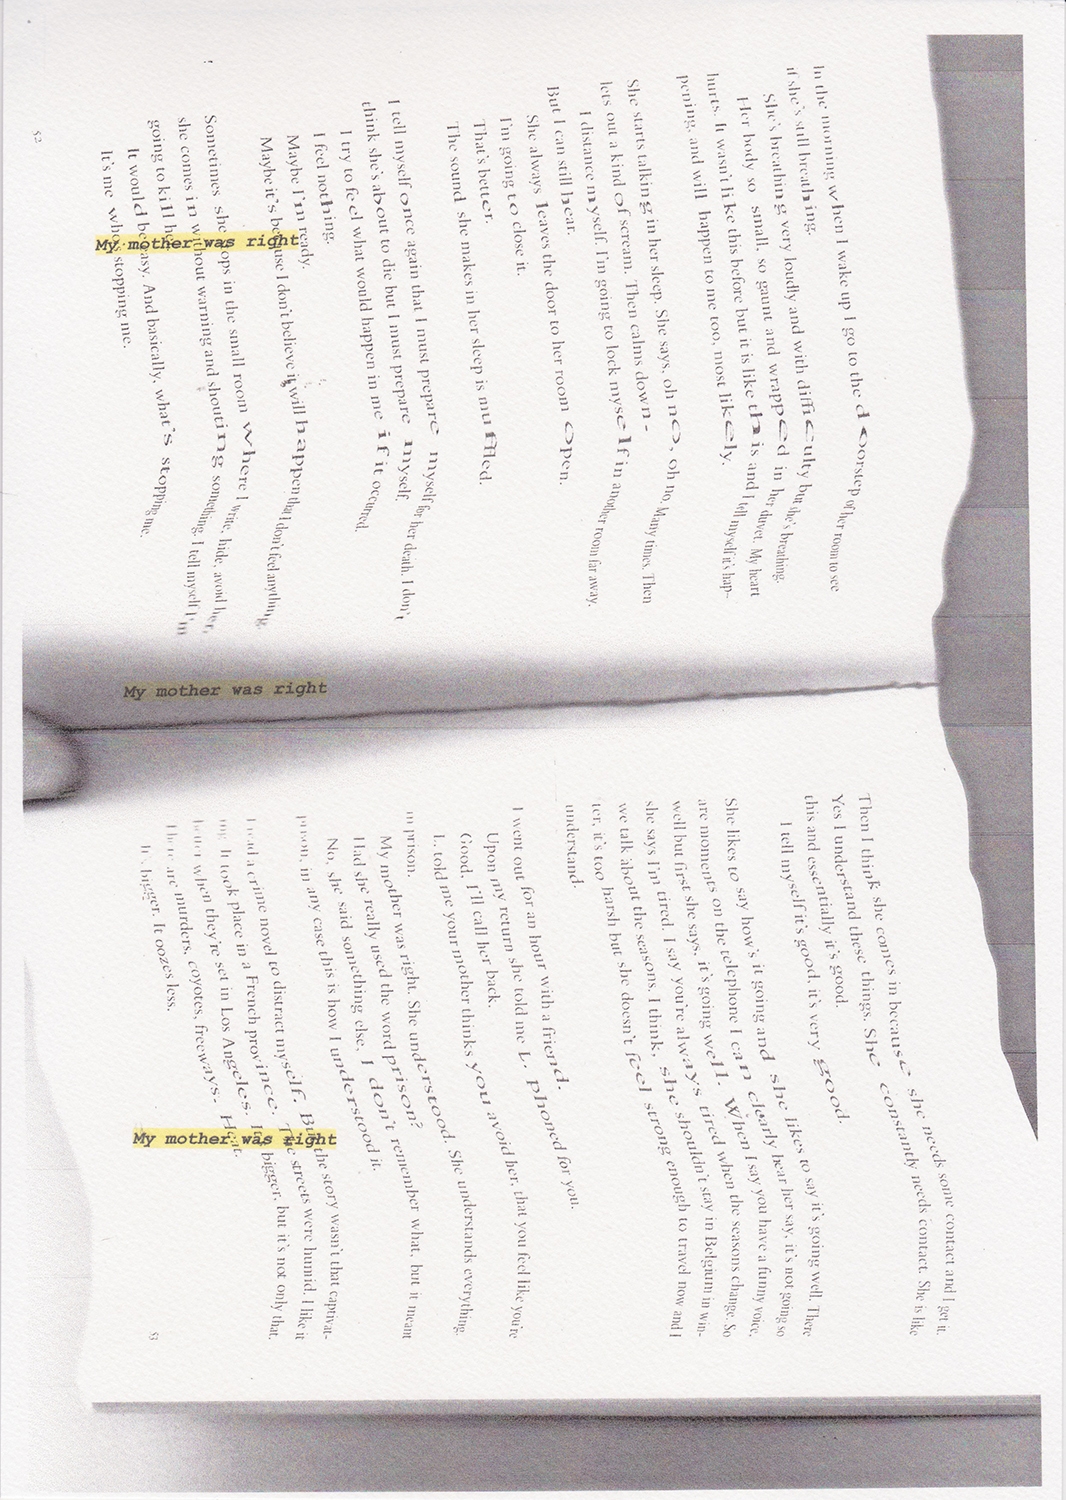 In the morning when I wake up I go to the doorstep of her room to see
if she's still breathing.
She's breathing very loudly and with difficulty but she's breathing.
Her body so small, so gaunt and wrapped in her duvet. My heart
hurts. It wasn't like this before but it is like this and I tell myself it's hap-
pening, and will happen to me too, most likely.
She starts talking in her sleep. She says, oh no, oh no. Many times. Then
lets out a kind of scream. Then calms down.
I distance myself. I'm going to lock myself in another room far away.
But I can still hear.
She always leaves the door to her room open.
I'm going to close it.
That's better.
The sound she makes in her sleep is muffled.
I tell myself once again that I must prepare myself for her death. I don't
think she's about to die but I must prepare myself.
I try to feel what would happen in me if it occurred.
I feel nothing.
Maybe I'm ready.
Maybe it's because I don't believe it will happen that I don't feel anything.
Sometimes she stops in the small room where I write, hide, avoid her,
she comes in without warning and shouting something. I tell myself I'm
going to kill her.
It would be easy. And basically, what's stopping me.
It's me who's stopping me.
52
My mother was right
My mother was right
Then I think she comes in because she needs some contact and I get it.
Yes I understand these things. She constantly needs contact. She is like
this and essentially it's good.
I tell myself it's good, it's very good.
She likes to say how's it going and she likes to say it's going well. There
are moments on the telephone I can clearly hear her say, it's not going so
well but first she says, it's going well. When I say you have a funny voice,
she says I'm tired. I say you're always tired when the seasons change. So
we talk about the seasons. I think, she shouldn't stay in Belgium in win-
ter, it's too harsh but she doesn't feel strong enough to travel now and I
understand.
I went out for an hour with a friend.
Upon my return she told me L. phoned for you.
Good, I'll call her back.
L. told me your mother thinks you avoid her, that you feel like you're
in prison.
My mother was right. She understood. She understands everything.
Had she really used the word prison?
No, she said something else, I don't remember what, but it meant
prison, in any case this is how I understood it.
I read a crime novel to distract myself. But the story wasn't that captivat-
ing. It took place in a French province. The streets were humid. I like it
better when they're set in Los Angeles. It's bigger, but it's not only that.
There are murders, coyotes, freeways.
It's bigger. It oozes less.
53
My mother was right